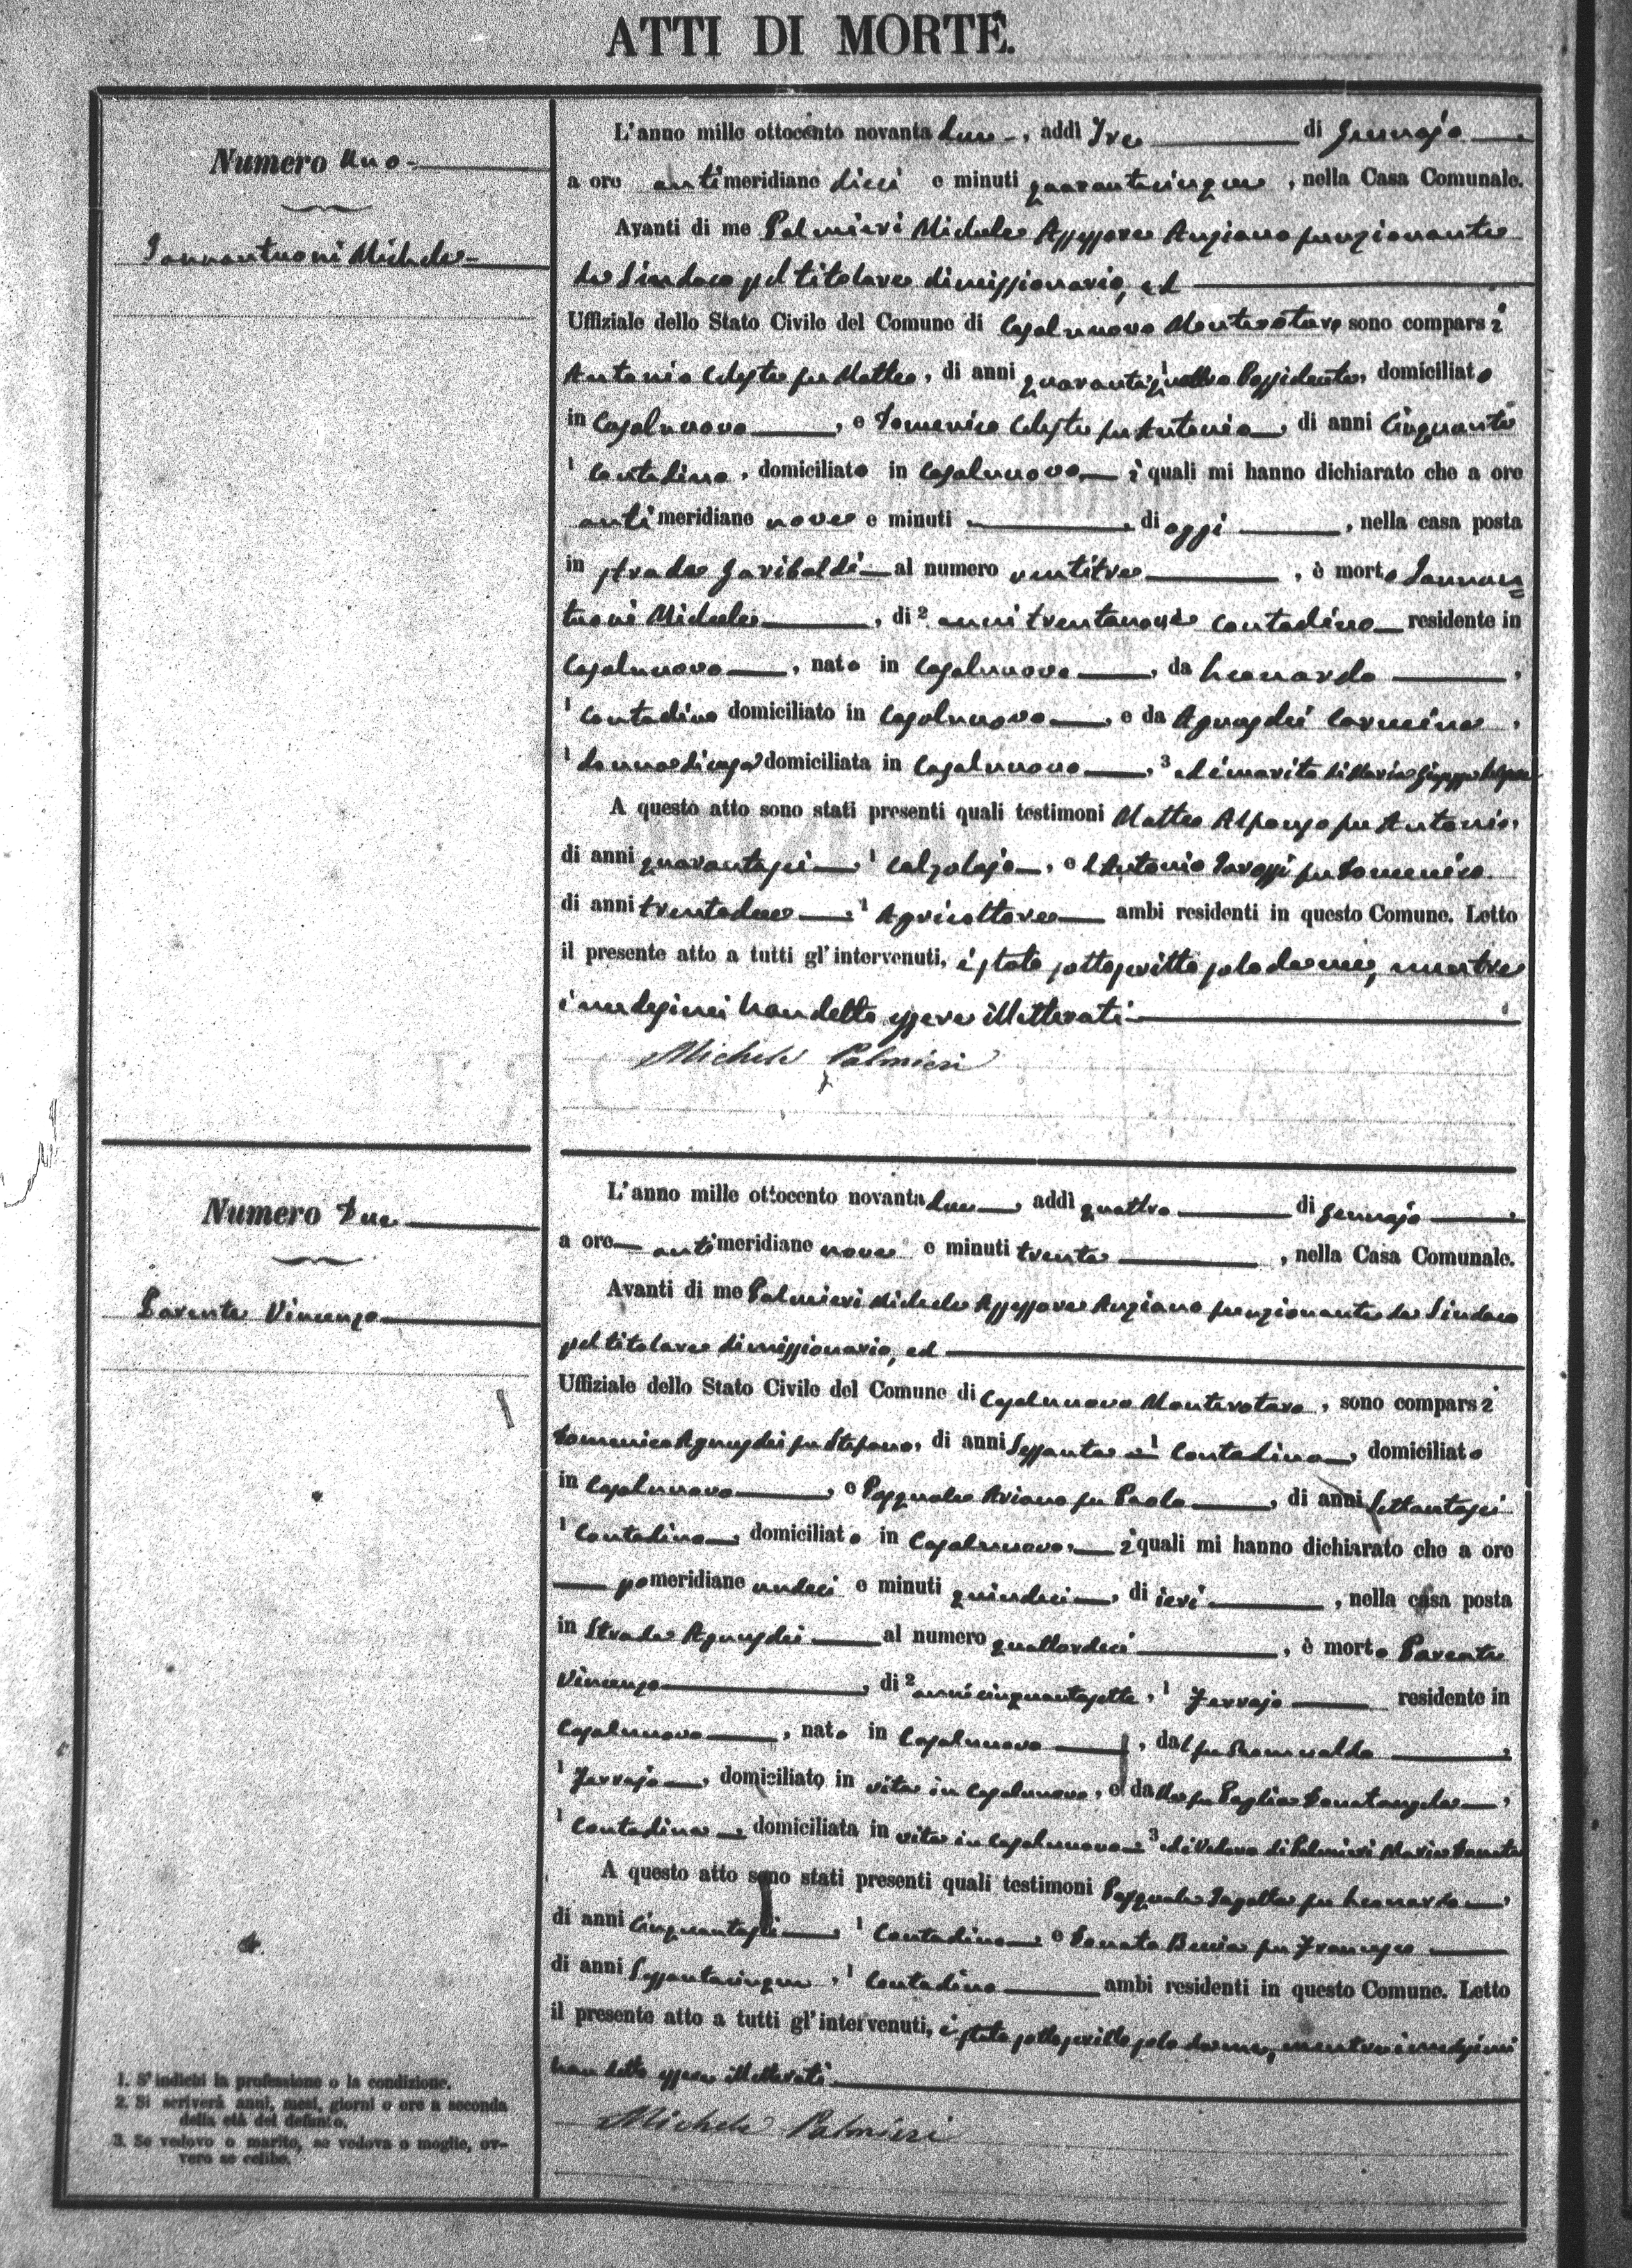 ATTI DI MORTE.
Numero Uno
Iannantuoni Michele
L'anno mille ottocento novanta due, addì Tre di Gennajo
a ore antimeridiane dieci e minuti quarantacinque, nella Casa Comunale.
Avanti di me Palmieri Michele Assessore Anziano funzionante
da Sindaco pel titolare dimissionario, ed
Uffiziale dello Stato Civile del Comune di Casalnuovo Monterotaro sono comparsi
Antonio Celeste fu Matteo, di anni quarantaquattro Possidente, domiciliato
in Casalnuovo, e Domenico Celeste fu Antonio, di anni Cinquanta
1 Contadino, domiciliato in Casalnuovo i quali mi hanno dichiarato che a ore
antimeridiane nove e minuti , di oggi , nella casa posta
in strada Garibaldi al numero ventitre, è morto Iannan
tuoni Michele, di 2 anni trentanove contadino residente in
Casalnuovo, nato in Casalnuovo, da Leonardo,
1 Contadino domiciliato in Casalnuovo, e da Agnusdei Carmina,
1 donna di casa domiciliata in Casalnuovo, 3 ed marito di Maria Giuseppa
A questo atto sono stati presenti quali testimoni Matteo Alfonzo fu Antonio,
di anni quarantasei, 1 Calzolajo, e d Antonio Tarossi fu Domenico
di anni trentadue, 1 Agricoltore ambi residenti in questo Comune. Letto
il presente atto a tutti gl'intervenuti, è stato sottoscritto solo da me, mentre
i medesimi han detto essere illetterati
Michele Palmieri
Numero Due
Parente Vincenzo
L'anno mille ottocento novanta due, addì quattro di Gennajo
a ore antimeridiane nove e minuti trenta, nella Casa Comunale.
Avanti di me Palmieri Michele Assessore Anziano funzionante da Sindaco
pel titolare dimissionario, ed
Uffiziale dello Stato Civile del Comune di Casalnuovo Monterotaro, sono comparsi
Domenico Agnusdei fu Stefano, di anni Sessanta 1 Contadino, domiciliato
in Casalnuovo, e Pasquale Aviano fu Paolo, di anni settantasei
1 Contadino, domiciliato in Casalnuovo, i quali mi hanno dichiarato che a ore
pomeridiane undeci e minuti quindeci, di ieri, nella casa posta
in Strada Agnusdei al numero quattordeci, è morto Parente
Vincenzo, di 2 anni cinquantasette, 1 Ferrajo residente in
Casalnuovo, nato in Casalnuovo, dal fu Romualdo,
1 Ferrajo, domiciliato in vita in Casalnuovo, e da la fu Paglia Donatangela,
1 Contadina domiciliata in vita in Casalnuovo 3 ed Vedovo di Palmieri Maria Donata
A questo atto sono stati presenti quali testimoni Pasquale fu Leonardo,
di anni Cinquantasei, 1 Contadino, e Donato fu Francesco
di anni Sessantacinque, 1 Contadino ambi residenti in questo Comune. Letto
il presente atto a tutti gl'intervenuti, è stato sottoscritto solo da me, mentre i medesimi
han detto essere illetterati
Michele Palmieri
1. S'indichi la professione o la condizione.
2. Si scriverà anni, mesi, giorni o ore a seconda
della età del defunto.
3. Se vedovo o marito, se vedova o moglie, ov-
vero se celibe.